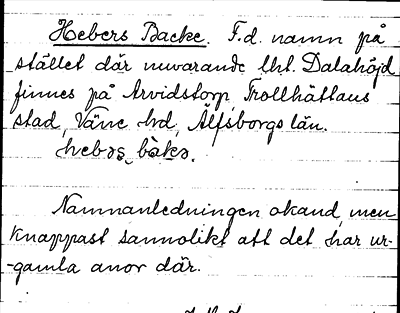 Hebers Backe. F.d. namn på
stället där nuvarande lht. Dalahöjd
finnes på Arvidstorp, Trollhättans
stad, Väne hd, Älfsborgs län.
hebəs bàkə.
Namnanledningen okänd, men
knappast sannolikt att det har ur-
-gamla anor där.